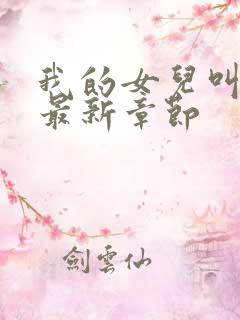 我的女兒叫
最新章節
劍雲仙